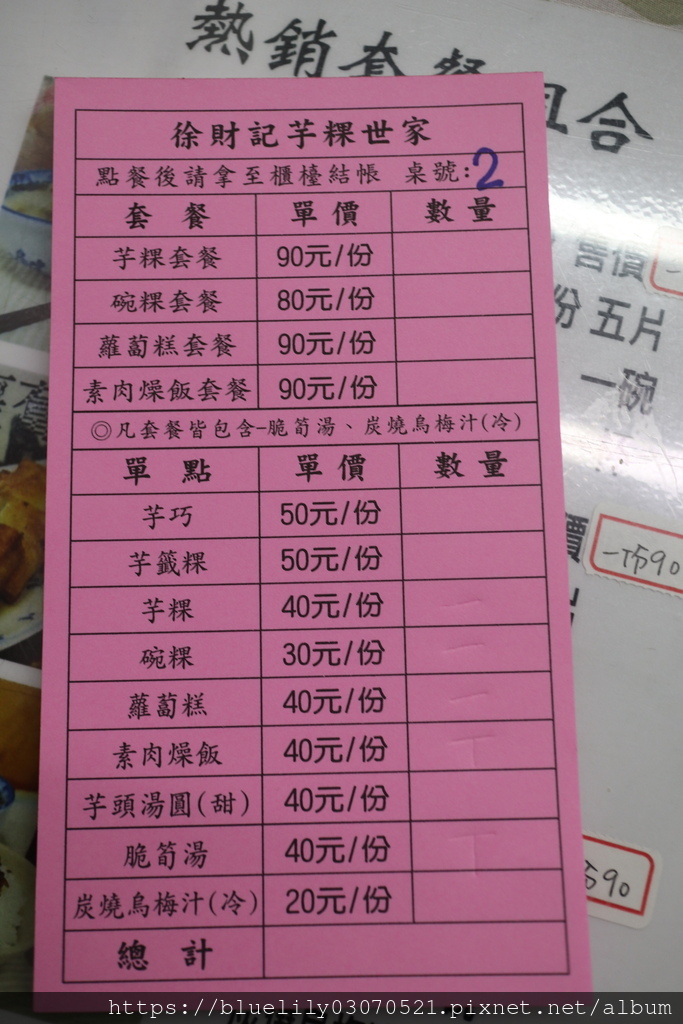 熱銷套餐組合
徐財記芋粿世家
點餐後請拿至櫃檯結帳 桌號:2
套餐 單價 數量
芋粿套餐 90元/份
碗粿套餐 80元/份
蘿蔔糕套餐 90元/份
素肉燥飯套餐 90元/份
◎凡套餐皆包含-脆筍湯、炭燒烏梅汁(冷)
單點 單價 數量
芋巧 50元/份
芋籤粿 50元/份
芋粿 40元/份 一
碗粿 30元/份 一
蘿蔔糕 40元/份 一
素肉燥飯 40元/份 丅
芋頭湯圓(甜) 40元/份
脆筍湯 40元/份 丅
炭燒烏梅汁(冷) 20元/份
總計
售價
份 五片
一碗
價
90
90
https://bluelily03070521.pixnet.net/album